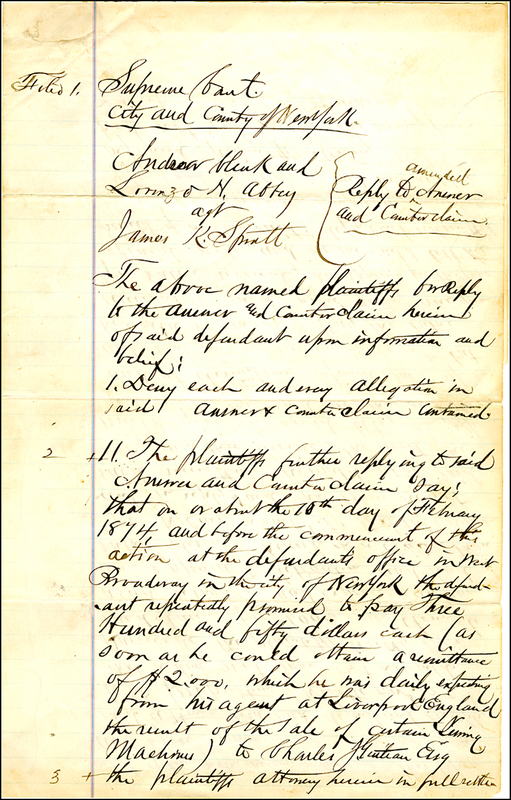 Filed 1. Supreme Court.
City and County of New York.
Andrew Clenk and
Lorenzo N. Abbey
agt
James K. Spratt
amended
Reply to Answer
and Counterclaim.
The above named plaintiffs for Reply
to the answer and Counterclaim herein
of said defendant upon information and
belief:
1. Deny each and every allegation in
said answer & counterclaim contained.
2 11. The plaintiffs further replying to said
Answer and Counterclaim say:
that on or about the 10th day of February
1874, and before the commencement of this
action at the defendants office in West
Broadway in the city of New York the defend-
ant repeatedly promised to pay Three
Hundred and fifty dollars cash (as
soon as he could obtain a remittance
of $2.000, which he was daily expecting
from his agent at Liverpool England
the result of the sale of certain Sewing
Machines) to Charles J Guiteau Esq
3 the plaintiffs attorney herein in full settle